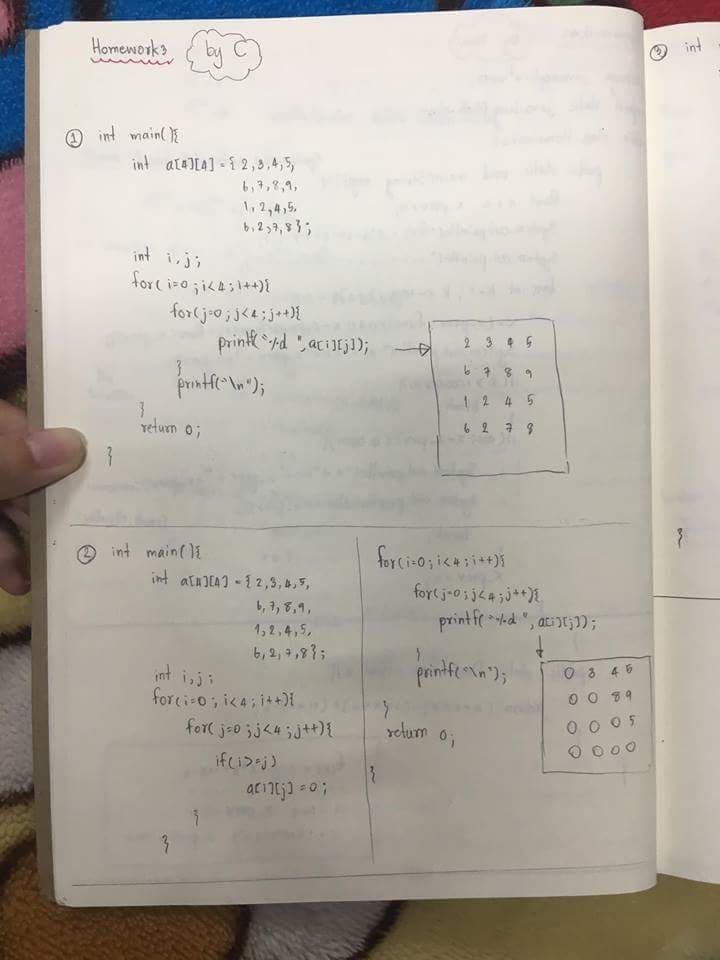 Homework3 by C
① int main(){
int a[4][4] = { 2,3,4,5,
6,7,8,9,
1,2,4,5,
6,2,7,8 };
int i,j;
for(i=0;i<4;i++){
for(j=0;j<4;j++){
printf("%d ",a[i][j]);
}
printf("\n");
}
return 0;
}
2 3 4 5
6 7 8 9
1 2 4 5
6 2 7 8
② int main(){
int a[4][4] = { 2,3,4,5,
6,7,8,9,
1,2,4,5,
6,2,7,8 };
int i,j;
for(i=0; i<4;i++){
for(j=0;j<4;j++){
if(i>=j)
a[i][j] = 0;
}
}
for(i=0;i<4;i++){
for(j=0;j<4;j++){
printf("%d ",a[i][j]);
}
printf("\n");
}
return 0;
}
0 3 4 5
0 0 8 9
0 0 0 5
0 0 0 0
③ int
}